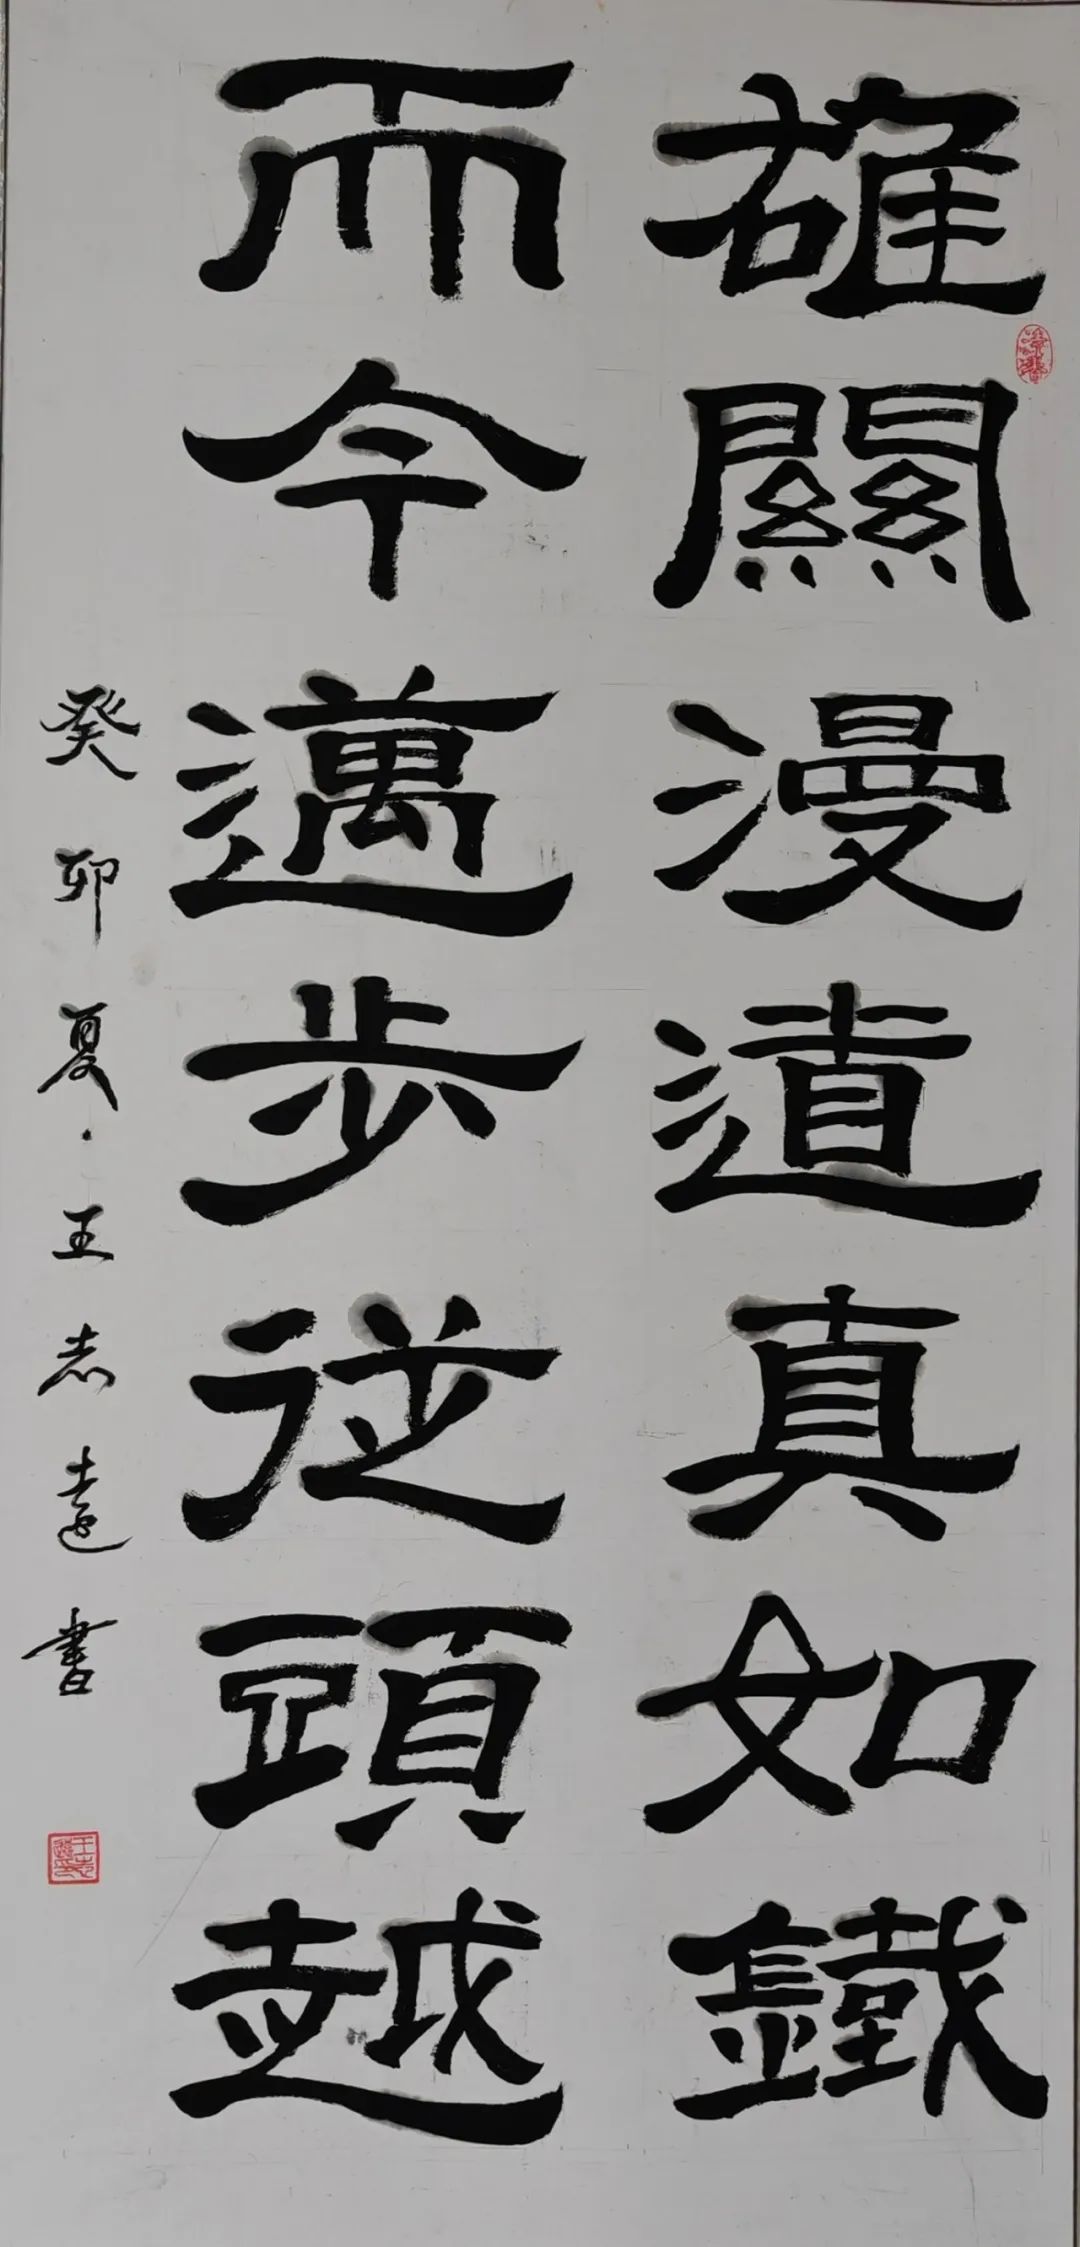 雄關漫道真如鐵
而今邁步從頭越
癸卯夏·王志遠書